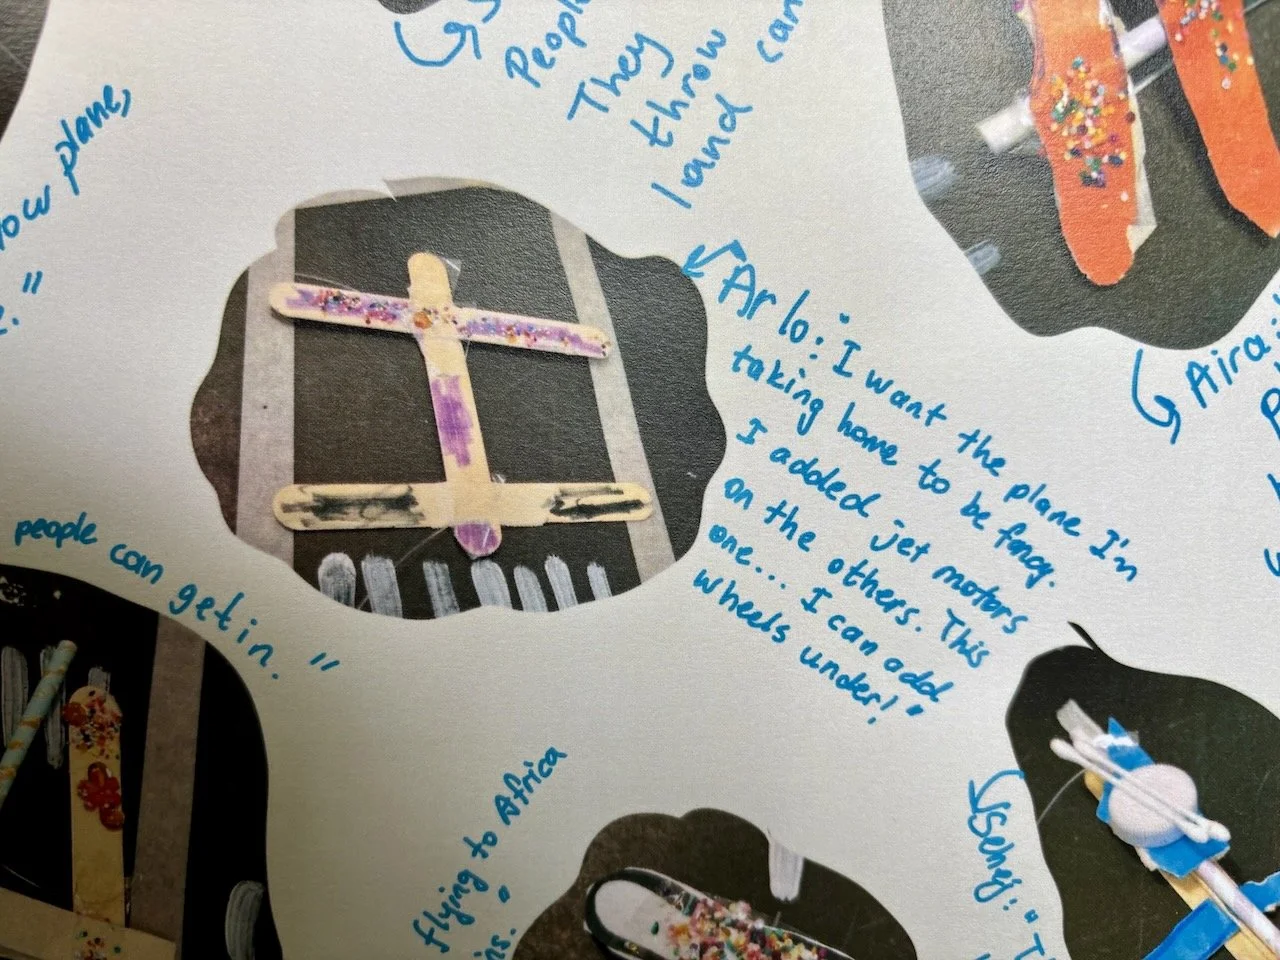 People
They
throw can
land
plane,
"
Arlo: "I want the plane I'm
taking home to be fancy.
I added jet motors
on the others. This
one... I can add
wheels under!"
Aira:
people can get in."
flying to Africa
"
Sehej: "